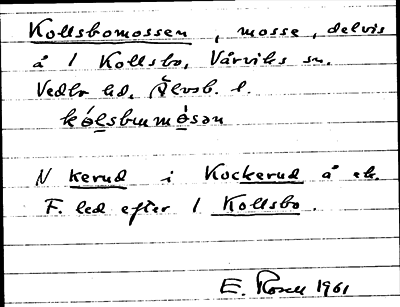 Kollsbomossen, mosse, delvis
å 1 Kollsbo, Vårviks sn.
Vedbo hd, Älvsb. l.
kólsbummósən
N kerud i Kockerud å ek.
F. led efter 1 Kollsbo.
E. Rosell 1961